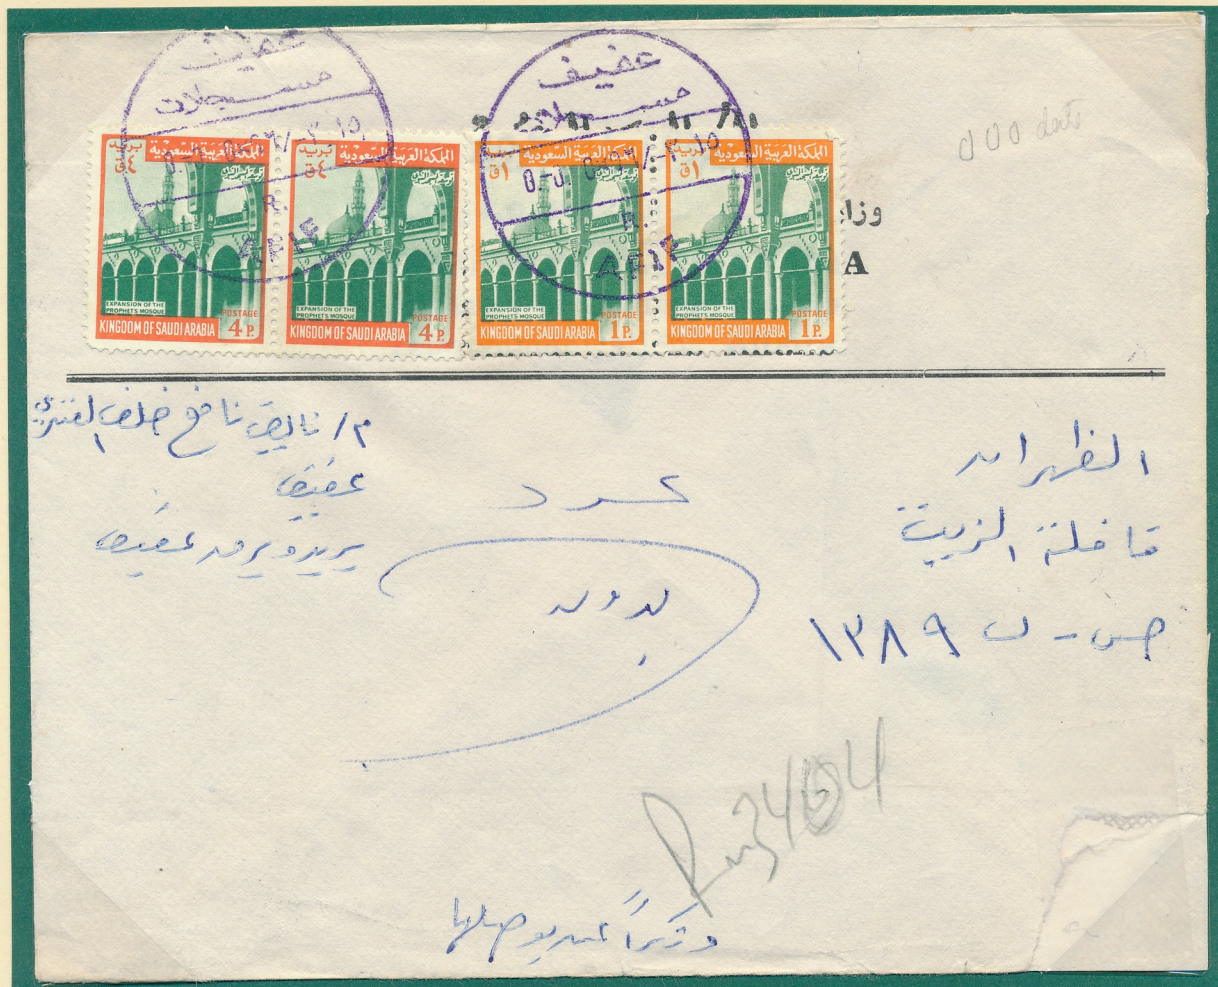 عفيف
مسجلات
R.
AFIF
عفيف
مسجلات
R.
AFIF
odd date
المملكة العربية السعودية
بريد
٤ق
EXPANSION OF THE PROPHETS MOSQUE
POSTAGE
KINGDOM OF SAUDI ARABIA 4 P.
المملكة العربية السعودية
بريد
٤ق
EXPANSION OF THE PROPHETS MOSQUE
POSTAGE
KINGDOM OF SAUDI ARABIA 4 P.
المملكة العربية السعودية
بريد
١ق
EXPANSION OF THE PROPHETS MOSQUE
POSTAGE
KINGDOM OF SAUDI ARABIA 1 P.
المملكة العربية السعودية
بريد
١ق
EXPANSION OF THE PROPHETS MOSQUE
POSTAGE
KINGDOM OF SAUDI ARABIA 1 P.
A
الظهران
قافلة الزيت
ص - ب ١٣٨٩
م/ نايف نافع خلف
عفيف
بريد وبرق عفيف
بدون
وشكراً